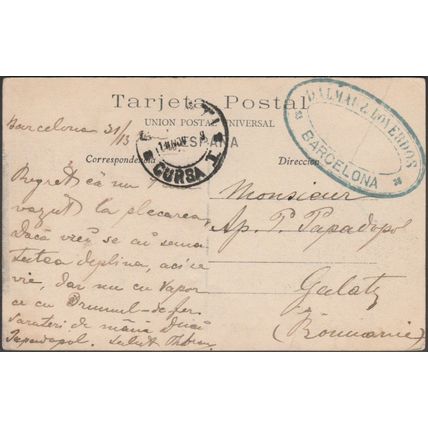 Tarjeta Postal
UNION POSTAL UNIVERSAL
ESPAÑA
Correspondencia
Direccion
DALMAU & LOVERDOS
BARCELONA
CURSA I
Barcelona 21/13
Regret că nu
vazut la plecarea,
Dacă vrei se ai sana
tatea deplina, aci
vie, dar nu cu vapor
ci cu Drumul-de-fer
Sarutari de mâna
Papadopol.
Monsieur
Ap. P. Papadopol
Galatz
(Roumanie)